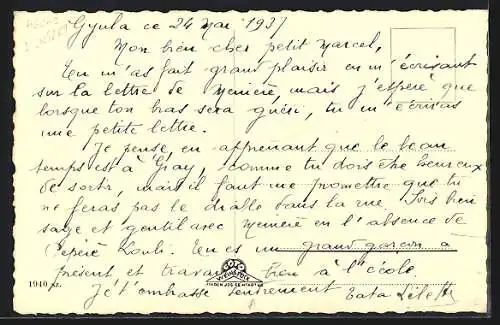 Gyula ce 24 Mai 1937
Mon bien cher petit Marcel,
Tu m'as fait grand plaisir en m'écrivant
sur la lettre de Mémère, mais j'espère que
lorsque ton bras sera guéri, tu m'écriras
une petite lettre.
Je pense, en apprenant que le beau
temps est à Gray, comme tu dois être heureux
de sortir, mais il faut me promettre que tu
ne feras pas le diable dans la rue. Sois bien
sage et gentil avec Mémère en l'absence de
Pépère Louli. Tu es un grand garçon à
présent et travaille bien à l'école.
1940 sz.
MINDEN JOG FENNTARTVA
Je t'embrasse tendrement Tata